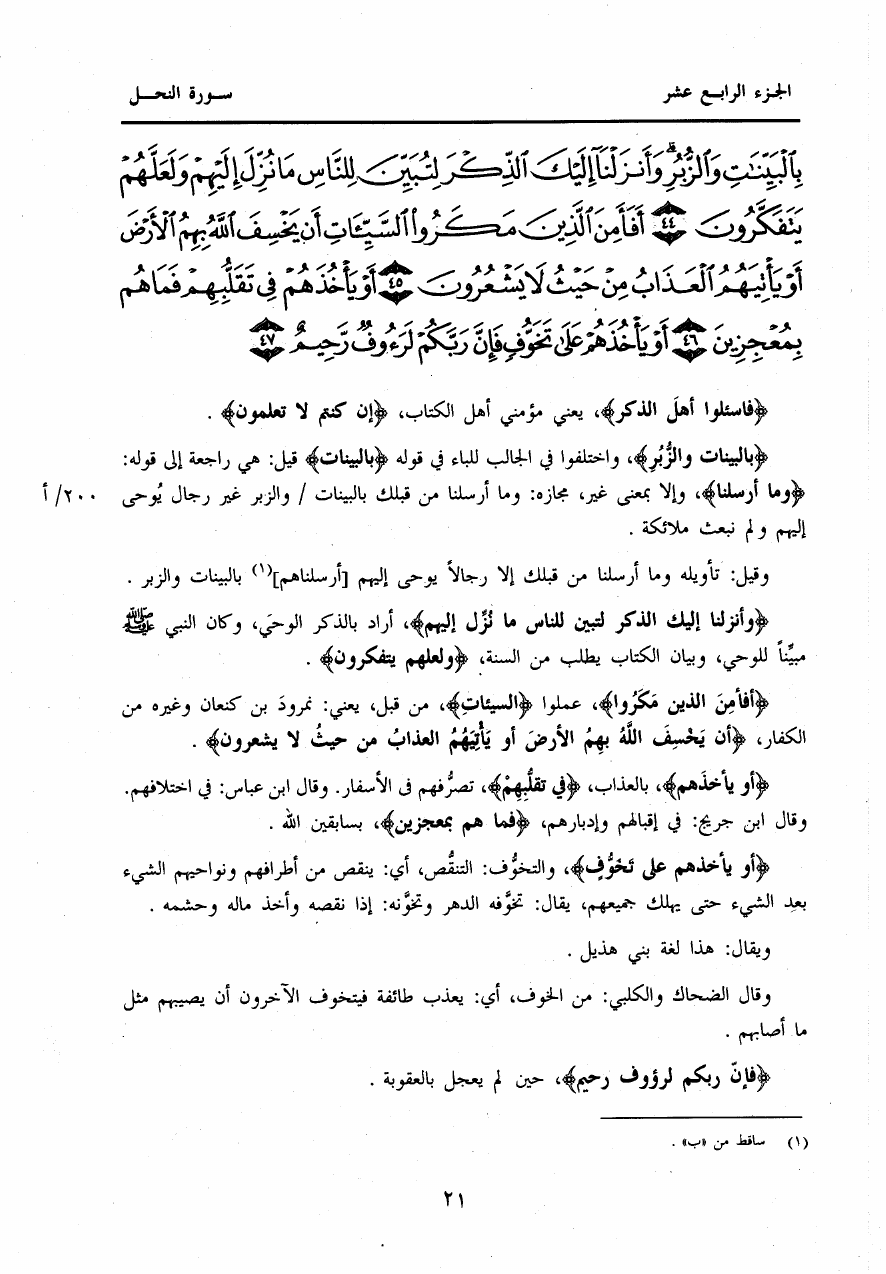 الجزء الرابع عشر
سورة النحل
بِالْبَيِّنَاتِ وَالزُّبُرِ وَأَنزَلْنَا إِلَيْكَ الذِّكْرَ لِتُبَيِّنَ لِلنَّاسِ مَا نُزِّلَ إِلَيْهِمْ وَلَعَلَّهُمْ
يَتَفَكَّرُونَ ٤٤ أَفَأَمِنَ الَّذِينَ مَكَرُوا السَّيِّئَاتِ أَن يَخْسِفَ اللَّهُ بِهِمُ الْأَرْضَ
أَوْ يَأْتِيَهُمُ الْعَذَابُ مِنْ حَيْثُ لَا يَشْعُرُونَ ٤٥ أَوْ يَأْخُذَهُمْ فِي تَقَلُّبِهِمْ فَمَا هُم
بِمُعْجِزِينَ ٤٦ أَوْ يَأْخُذَهُمْ عَلَى تَخَوُّفٍ فَإِنَّ رَبَّكُمْ لَرَءُوفٌ رَّحِيمٌ ٤٧
﴿فاسئلوا أهلَ الذكر﴾، يعني مؤمني أهل الكتاب، ﴿إن كنتم لا تعلمون﴾ .
﴿بالبينات والزُّبُرِ﴾، واختلفوا في الجالب للباء في قوله ﴿بالبينات﴾ قيل: هي راجعة إلى قوله:
﴿وما أرسلنا﴾، وإلا بمعنى غير، مجازه: وما أرسلنا من قبلك بالبينات / والزبر غير رجال يُوحى ٢٠٠/أ
إليهم ولم نبعث ملائكة .
وقيل: تأويله وما أرسلنا من قبلك إلا رجالاً يوحى إليهم [أرسلناهم](١) بالبينات والزبر .
﴿وأنزلنا إليك الذكر لتبين للناس ما نُزِّل إليهم﴾، أراد بالذكر الوحيَ، وكان النبي ﷺ
مبيِّناً للوحي، وبيان الكتاب يطلب من السنة، ﴿ولعلهم يتفكرون﴾ .
﴿أفأمِنَ الذين مَكَرُوا﴾، عملوا ﴿السيئاتِ﴾، من قبل، يعني: نمرودَ بن كنعان وغيره من
الكفار، ﴿أن يَخْسِفَ اللَّهُ بهِمُ الأرضَ أو يَأْتِيَهُمُ العذابُ من حيثُ لا يشعرون﴾ .
﴿أو يأخذَهم﴾، بالعذاب، ﴿في تقلُّبِهِمْ﴾، تصرُّفهم فى الأسفار. وقال ابن عباس: في اختلافهم.
وقال ابن جريج: في إقبالهم وإدبارهم، ﴿فما هم بمعجزين﴾، بسابقين الله .
﴿أو يأخذهم على تَخَوُّفٍ﴾، والتخوُّف: التنقُّص، أي: ينقص من أطرافهم ونواحيهم الشيء
بعد الشيء حتى يهلك جميعهم، يقال: تخوَّفه الدهر وتخوَّنه: إذا نقصه وأخذ ماله وحشمه .
ويقال: هذا لغة بني هذيل .
وقال الضحاك والكلبي: من الخوف، أي: يعذب طائفة فيتخوف الآخرون أن يصيبهم مثل
ما أصابهم .
﴿فإنّ ربكم لرؤوف رحيم﴾، حين لم يعجل بالعقوبة .
(١) ساقط من «ب» .
٢١